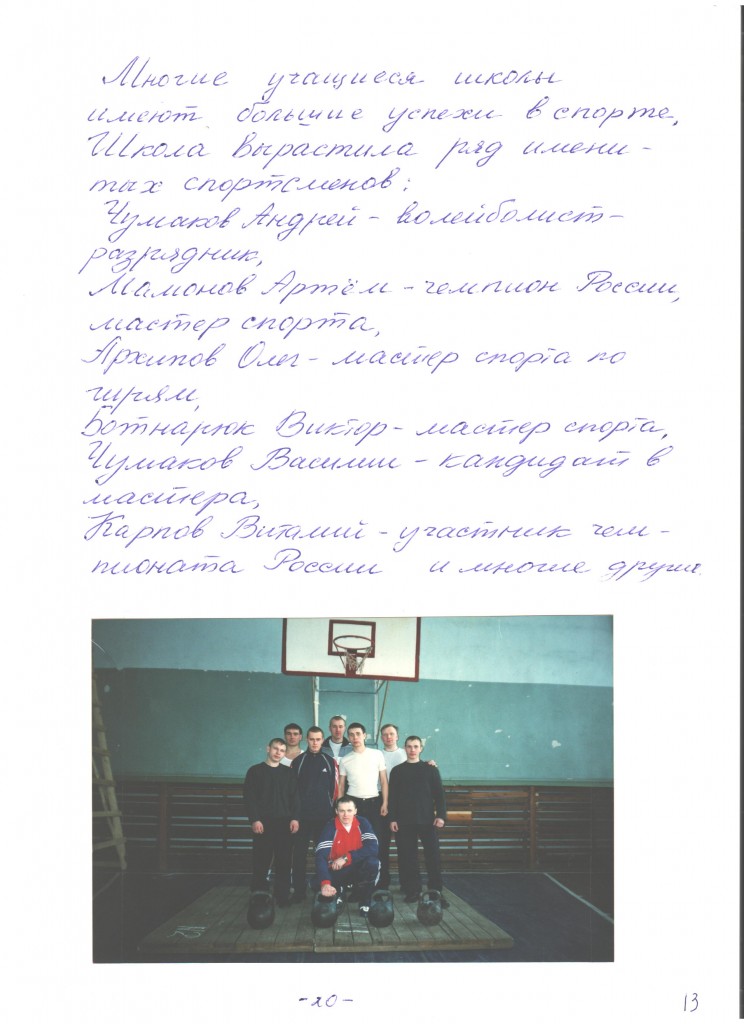 Многие учащиеся школы
имеют большие успехи в спорте.
Школа вырастила ряд имени-
тых спортсменов:
Чумаков Андрей - волейболист-
разрядник,
Мамонов Артём - чемпион России,
мастер спорта,
Архипов Олег - мастер спорта по
гирям,
Ботнарюк Виктор - мастер спорта,
Чумаков Василий - кандидат в
мастера,
Карпов Виталий - участник чем-
пионата России и многие другие.
-20-
13